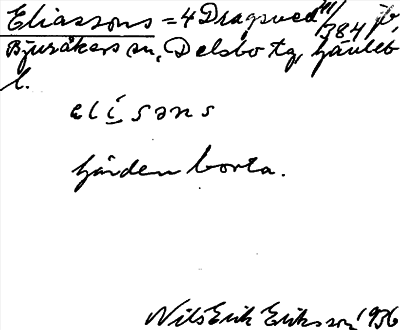 Eliassons = 4 Dragsved 11/384 jb,
Bjuråkers sn, Delsbo tg, Gävleb
l.
elisəns
gården borta.
Nils Erik Eriksson 1936